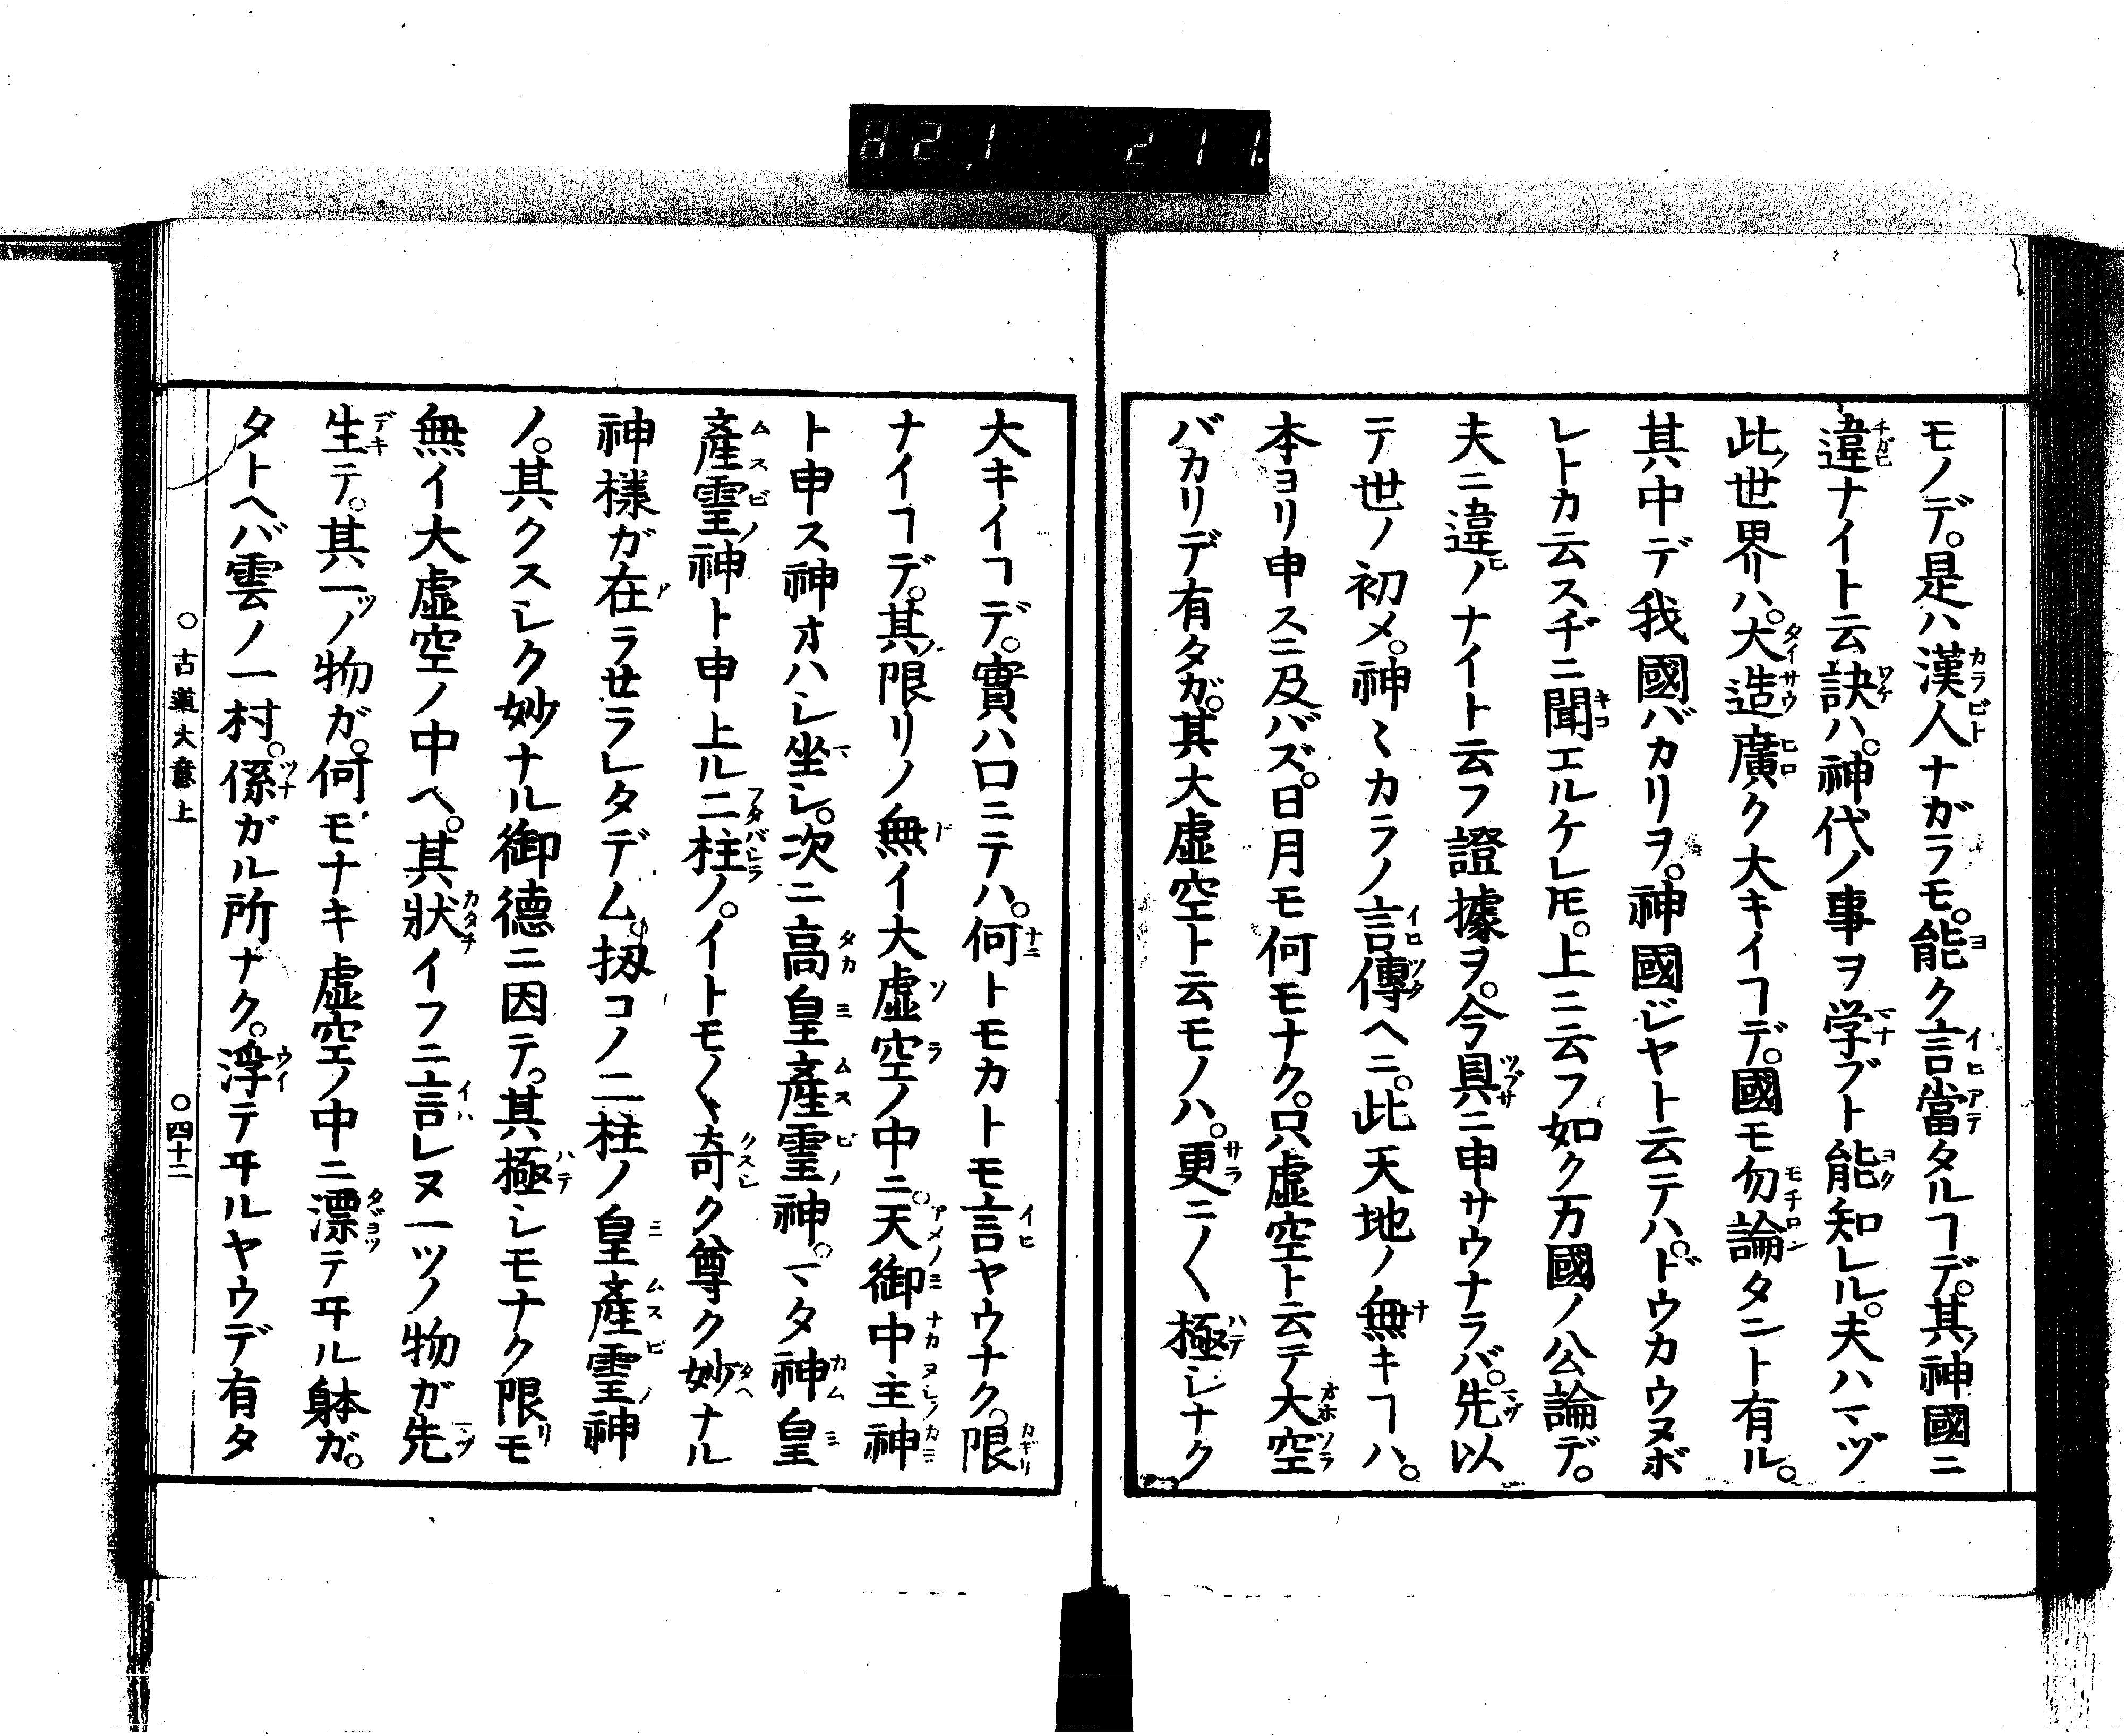 モノデ。是ハ漢人ナガラモ。能ク言當タルヿデ。其ノ神國ニ
違ナイト云訣ハ。神代ノ事ヲ学ブト能知レル。夫ハマヅ
此ノ世界ハ。大造廣ク大キイヿデ。國モ勿論タント有ル。
其中デ我國バカリヲ。神國ジヤト云テハ。ドウカウヌボ
レトカ云スヂニ聞エルケレ𪜈。上ニ云フ如ク万國ノ公論デ。
夫ニ違ヒノナイト云フ證據ヲ。今具ニ申サウナラバ。先以
テ世ノ初メ。神〻カラノ言傳ヘニ。此天地ノ無キヿハ。
本ヨリ申スニ及バズ。日月モ何モナク。只虚空ト云テ大空
バカリデ有タガ。其大虚空ト云モノハ。更ニ〳〵極シナク
大キイヿデ。實ハ口ニテハ。何トモカトモ言ヤウナク。限
ナイヿデ。其ノ限リノ無イ大虚空ノ中ニ。天御中主神
ト申ス神オハシ坐シ。次ニ高皇產靈神。マタ神皇
產靈神ト申上ル二柱ノ。イトモ〳〵奇ク尊ク妙ナル
神樣ガ在ラセラレタデム。扨コノ二柱ノ皇產靈神
ノ。其クスシク妙ナル御德ニ因テ。其極シモナク限リモ
無イ大虛空ノ中ヘ。其狀イフニ言レヌ一ツノ物ガ先
生テ。其一ツノ物ガ。何モナキ虛空ノ中ニ漂テヰル躰ガ。
タトヘバ雲ノ一村。係ガル所ナク。浮テヰルヤウデ有タ
○古道大意上 ○四十二
82.1 211.